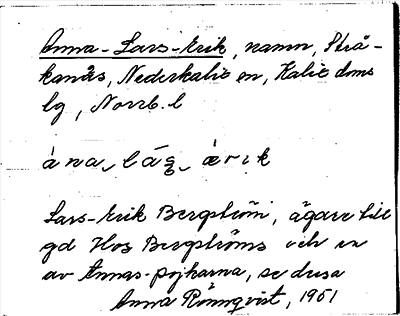 Anna-Lars-Erik, namn, Strå-
kanäs, Nederkalix en, Kalix doms
lg, Norrb. l
ána‿lág‿ ærik
Lars-Erik Bergström, ägare till
gd Hos Bergströms och en
av Annas-pojkarna, se dessa
Anna Rönnqvist, 1951